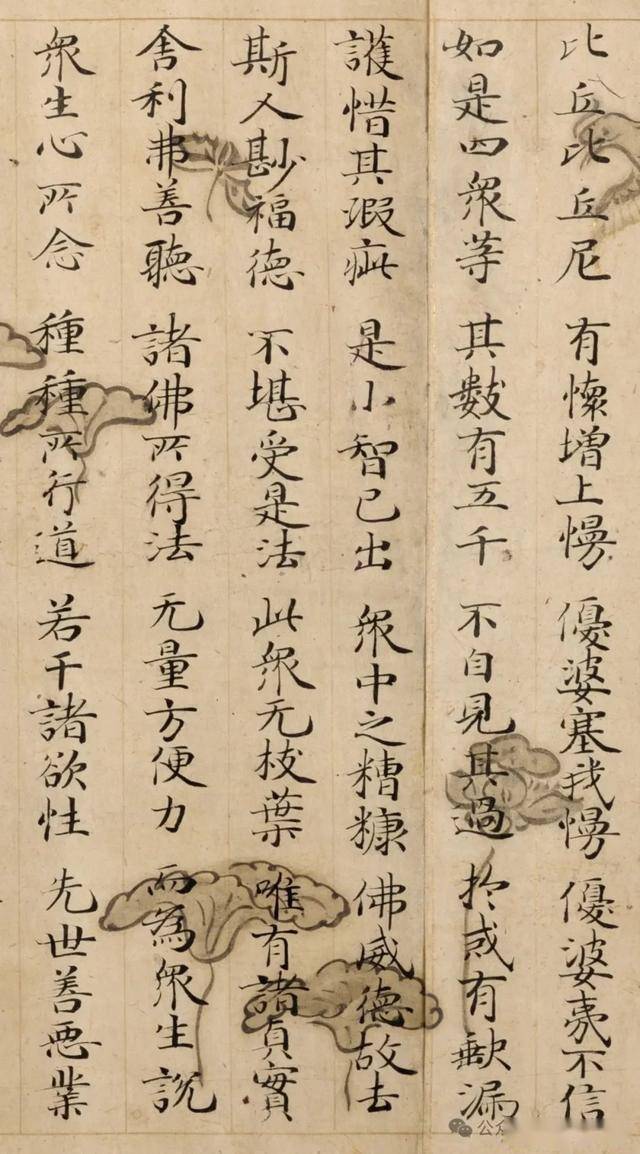 比丘比丘尼 有懷增上慢 優婆塞我慢 優婆夷不信
如是四眾等 其數有五千 不自見其過 於戒有缺漏
護惜其瑕疵 是小智已出 眾中之糟糠 佛威德故去
斯人尠福德 不堪受是法 此眾无枝葉 唯有諸真實
舍利弗善聽 諸佛所得法 无量方便力 而為眾生說
眾生心所念 種種所行道 若干諸欲性 先世善惡業
公众